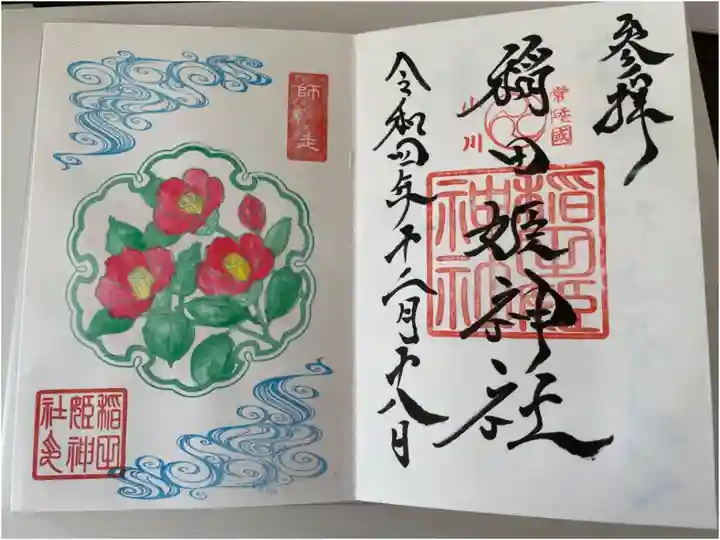 参拝
常陸國
小川
稲田姫神社
稲田姫
神社
令和四年十二月十八日
師走
稲田
姫神
社印